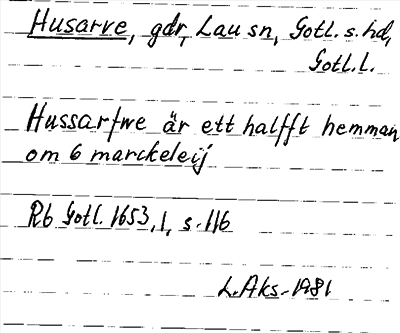 Husarve, gdr, Lau sn, Gotl. s. hd,
Gotl. l.
Hussarfwe är ett halfft hemman
om 6 marckeleij
Rb Gotl. 1653, 1, s. 116
L. Aks. 1981